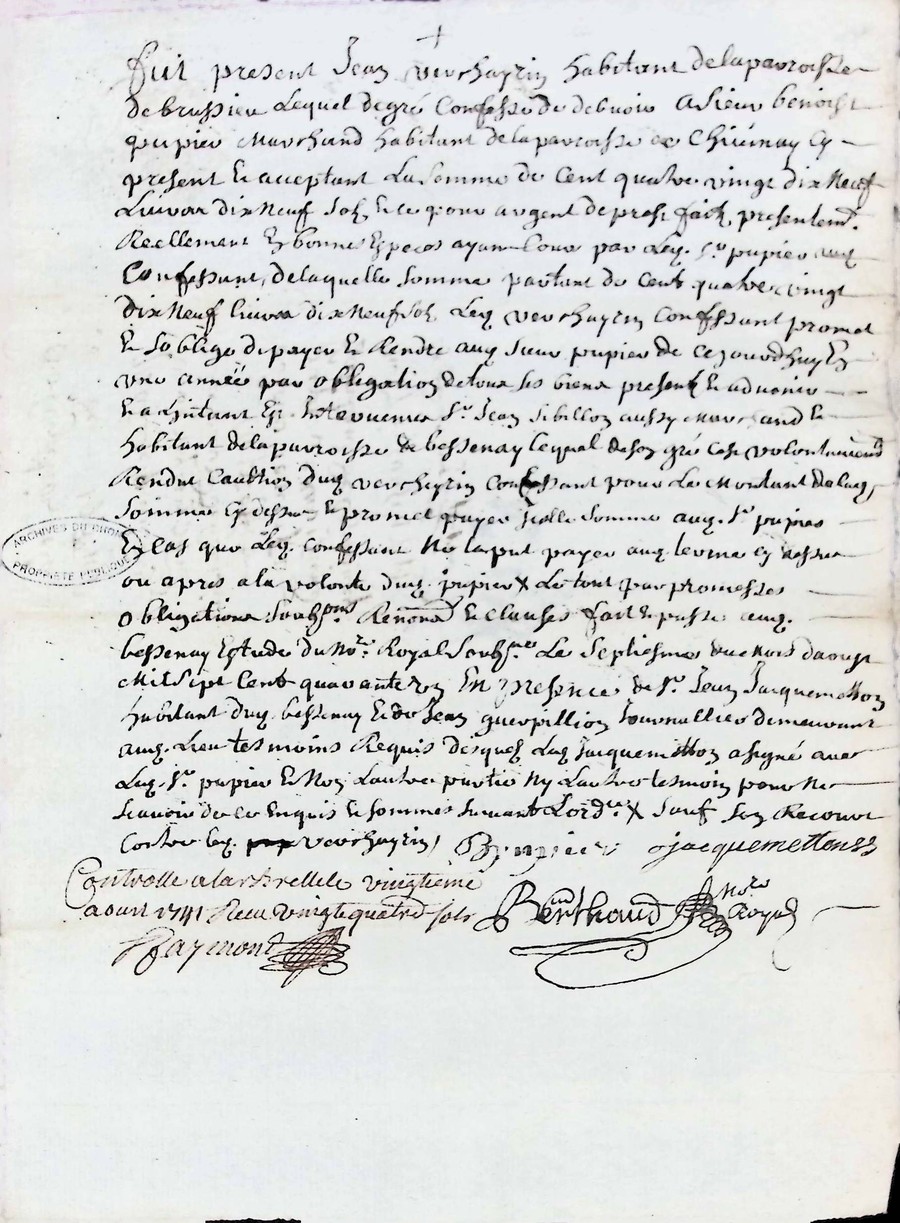 fut present Jean verchayrin habitant de la parroisse
de brussieu Lequel de gré Confesse de debvoir a sieur benoist
pupier Marchand habitant de la parroisse de Chivinay Cy
present et acceptant La somme de Cent quatre vingt dix Neuf
Livres dix Neuf sols Et ce pour argent de prest fait presentemt.
Reellement En bonnes Especes ayant Cours par Led. sr. pupier aud.
Confessant, de laquelle somme partant de Cent quatre vingt
dix Neuf livres dix Neuf sols Led. verchayrin Confessant promet
Et soblige de payer Et Rendre aud. sieur pupier de ce jourdhuy En
une année par obligation de tous ses biens presents Et advenir
Et a Linstant Est Intervenus Sr. Jean sibillon aussy marchand Et
habitant de la parroisse de bessenay lequel de son gré cest volontairemt
Rendut Caultion dud. verchayrin Confessant pour Le Montant de lad.
somme Cy dessus Et promet payer Icelle somme aud. Sr. pupier
En Cas que Led. Confessant Ne la put payer aud. terme cy dessus
ou apres a la volonte dud. pupier Le tout par promesses
obligations Soubons. Renonons Et Clauses fait Et passé aud.
bessenay Estude du Nore. Royal Soubsné. Le Septiesme du Mois daoust
Mil Sept Cent quarante un En Presence de Sr. Jean Jacquemetton
habitant dud. bessenay Et de Jean guerpillion Journallier demeurant
aud. Lieu tesmoins Requis desquels Led. Jacquemetton a signé avec
Led. Sr. pupier Et Non Lautre partie Ny Lautre tesmoin pour Ne
scavoir de ce Enquis Et sommes suivant Lordce. Sauf son Recours
Contre led. verchayrin B. pupier jacquemettonss
Controllé a larbrelle le vingtieme
aout 1741 Receu vingt quatre sols
Berthaud Nore Royal
Raymond
ARCHIVES DU RHONE
PROPRIETE PUBLIQUE